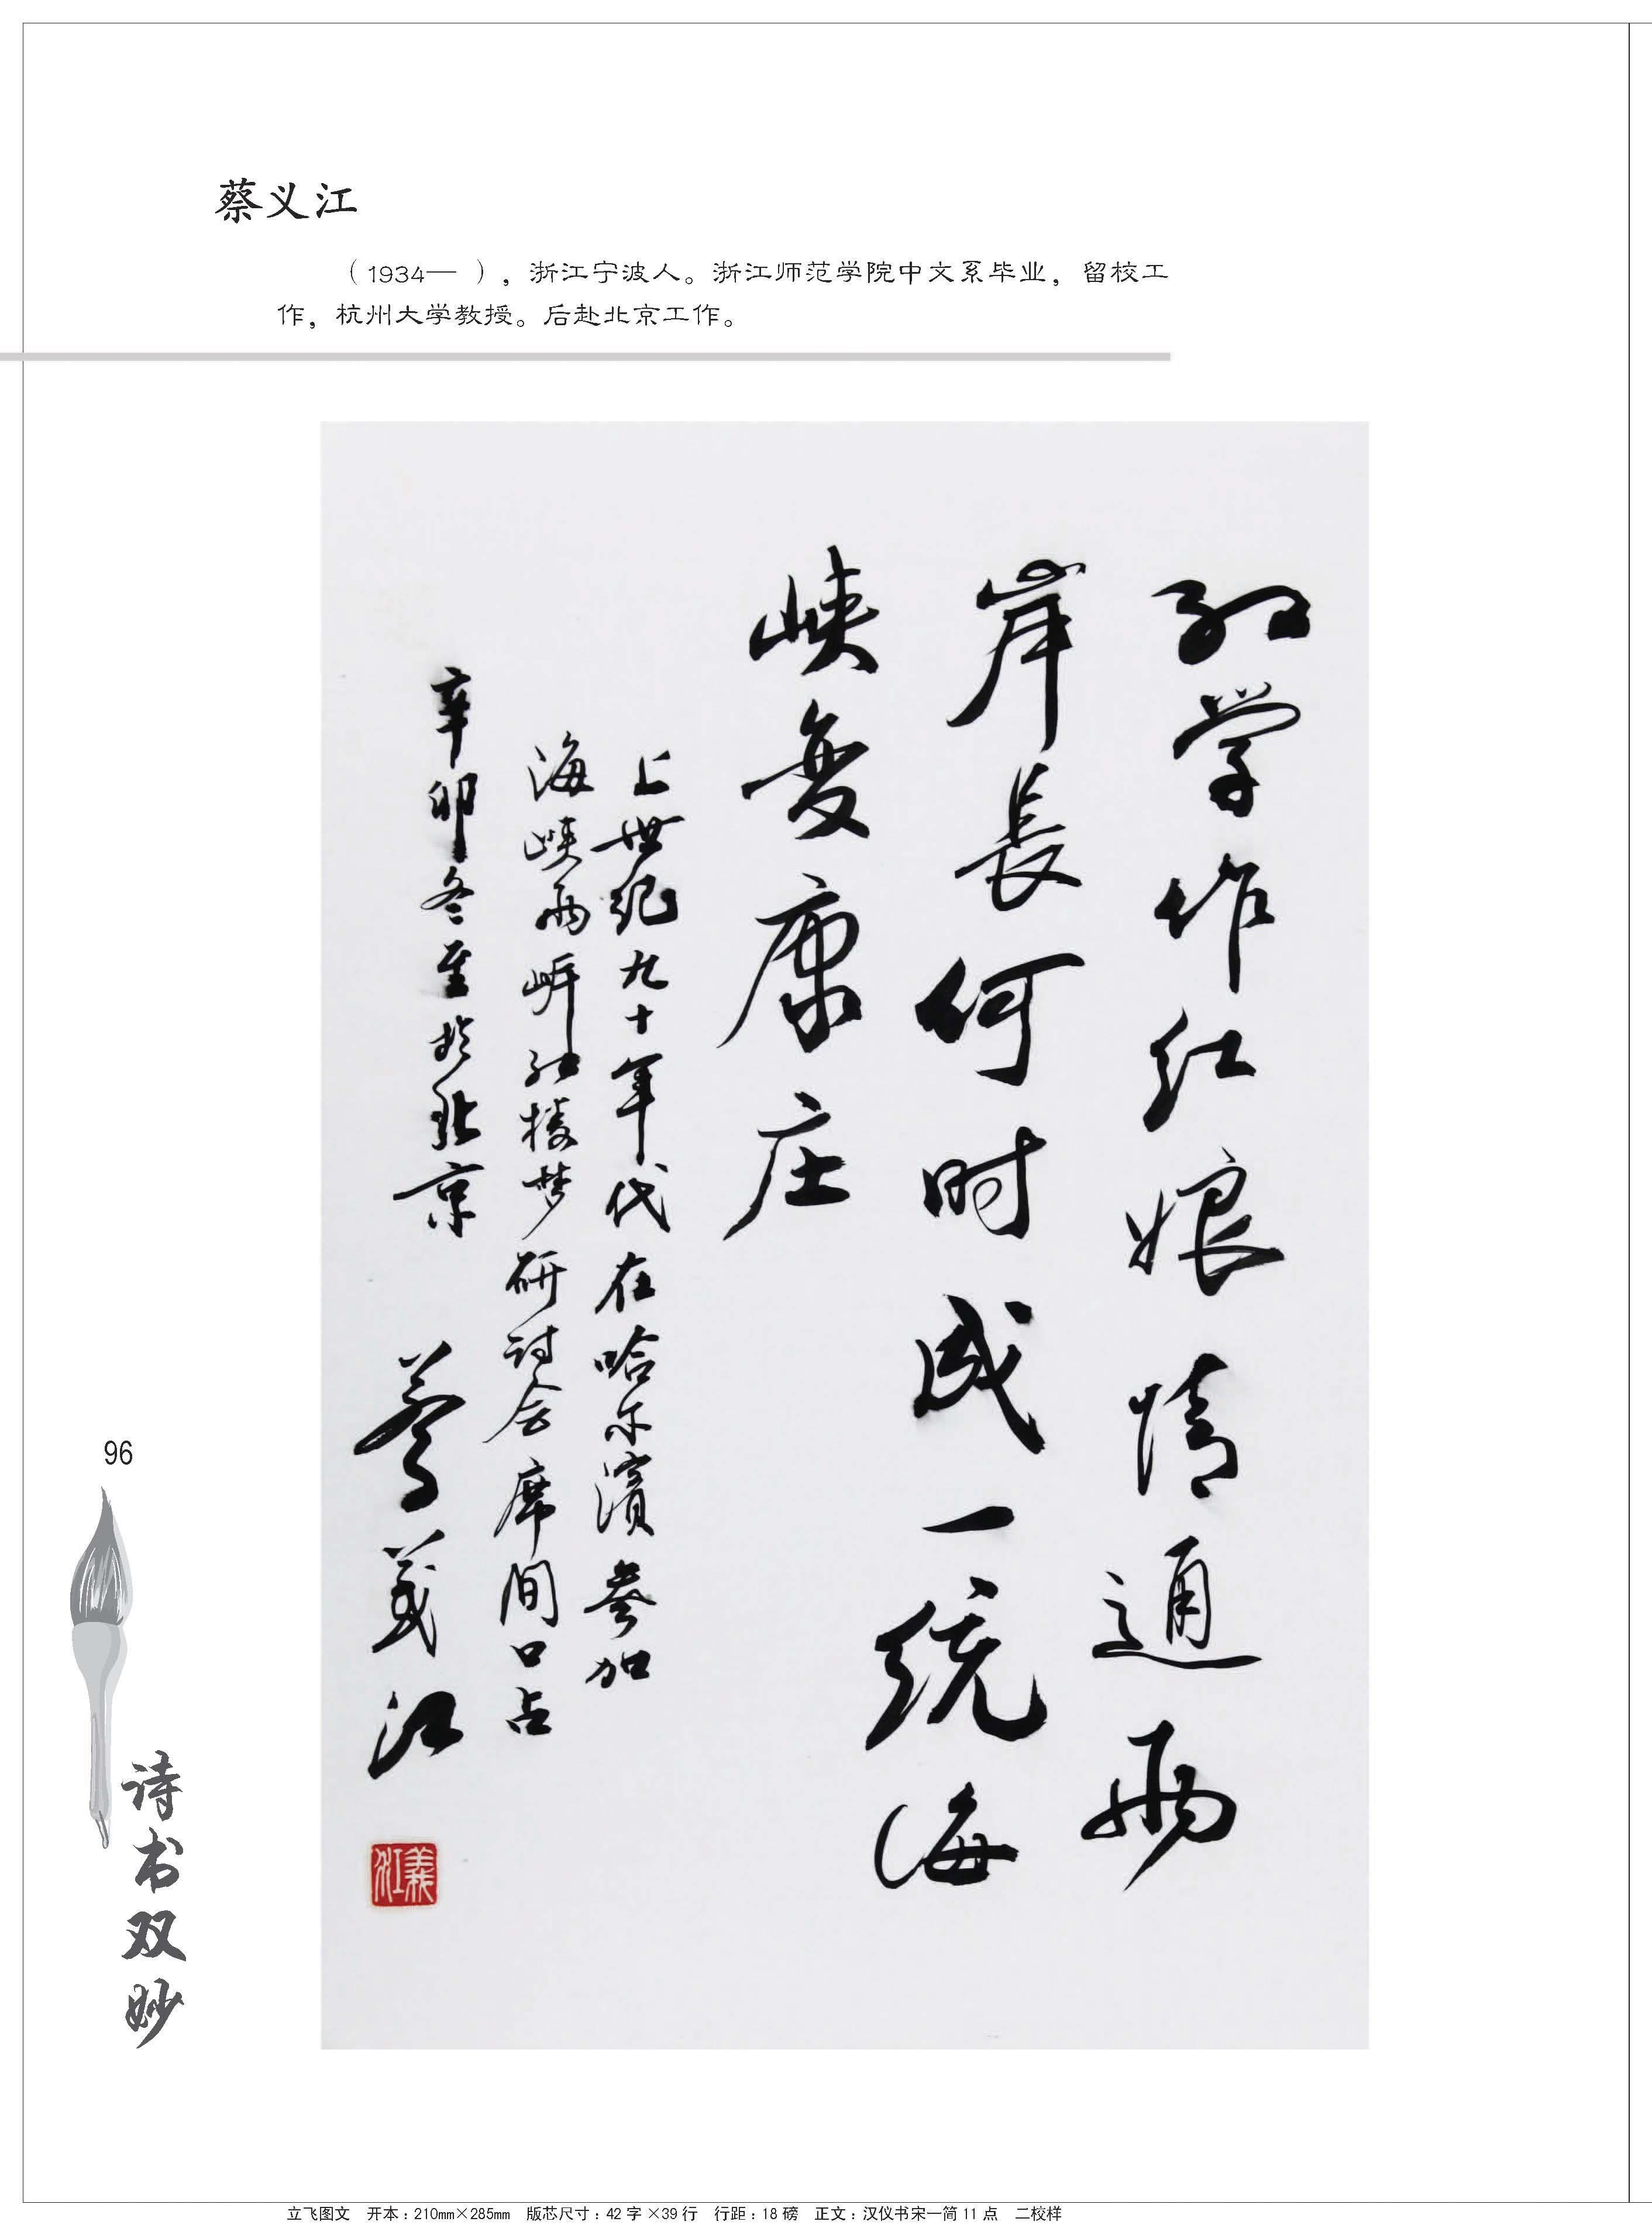 蔡义江
（1934— ），浙江宁波人。浙江师范学院中文系毕业，留校工
作，杭州大学教授。后赴北京工作。
红学作红娘情通两
岸長何时成一统海
峡变康庄
上世纪九十年代在哈尔濱参加
海峡两岍红楼梦研讨会席间口占
辛卯冬至於北京 蔡義江
義江
96
诗书双妙
立飞图文 开本：210mm×285mm 版芯尺寸：42字×39行 行距：18磅 正文：汉仪书宋一简11点 二校样